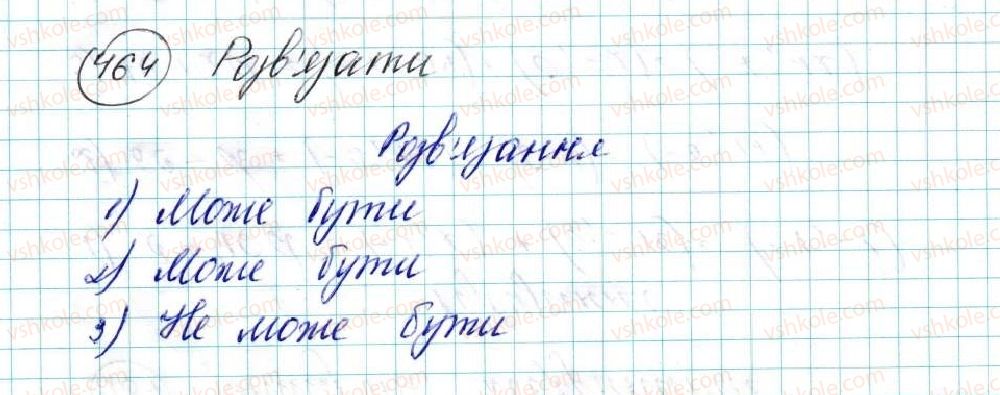 464 Розв'язати
Розв'язання
1) Може бути
2) Може бути
3) Не може бути